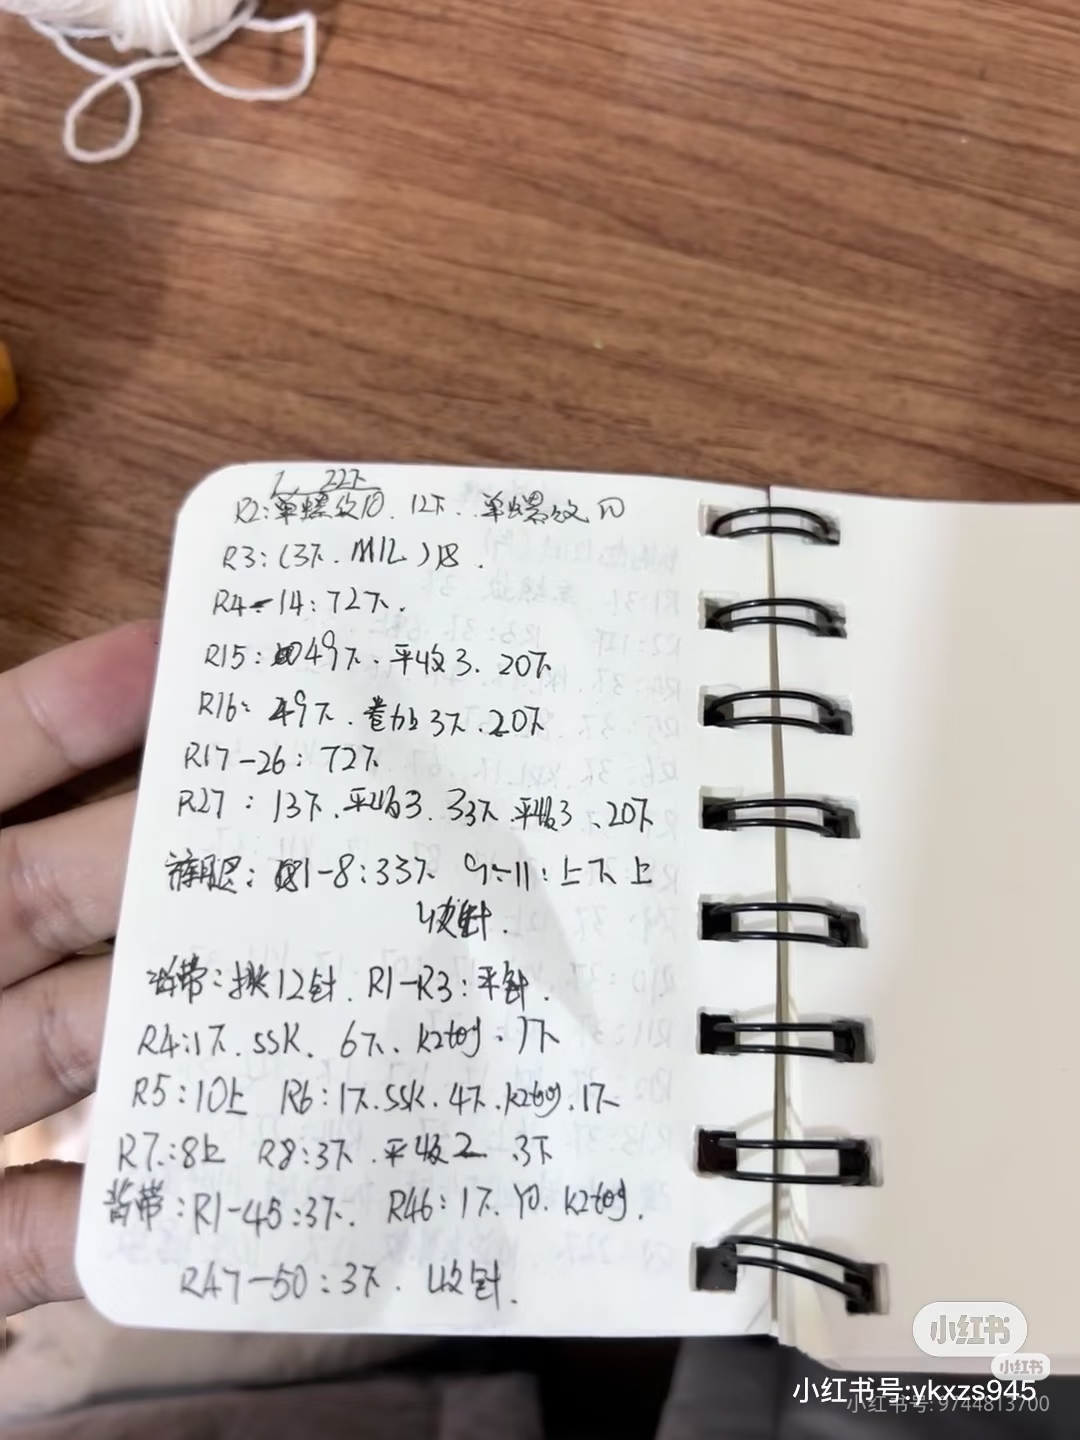 22下
R2:单螺纹10.12下.单螺纹10
R3:(3下.M1L)18.
R4-14:72下.
R15:49下.平收3.20下
R16:49下.卷加3下.20下
R17-26:72下
R27:13下.平收3.33下.平收3.20下
裤腿:R1-8:33下 9-11:上下上
收针.
背带:挑12针.R1-R3:平针.
R4:1下.SSK.6下.k2tog.1下
R5:10上 R6:1下.SSK.4下.k2tog.1下
R7:8上 R8:3下.平收2.3下
背带:R1-45:3下. R46:1下.YO.k2tog.
R47-50:3下.收针.
小红书
小红书
小红书号:ykxzs945
小红书号:9744813700